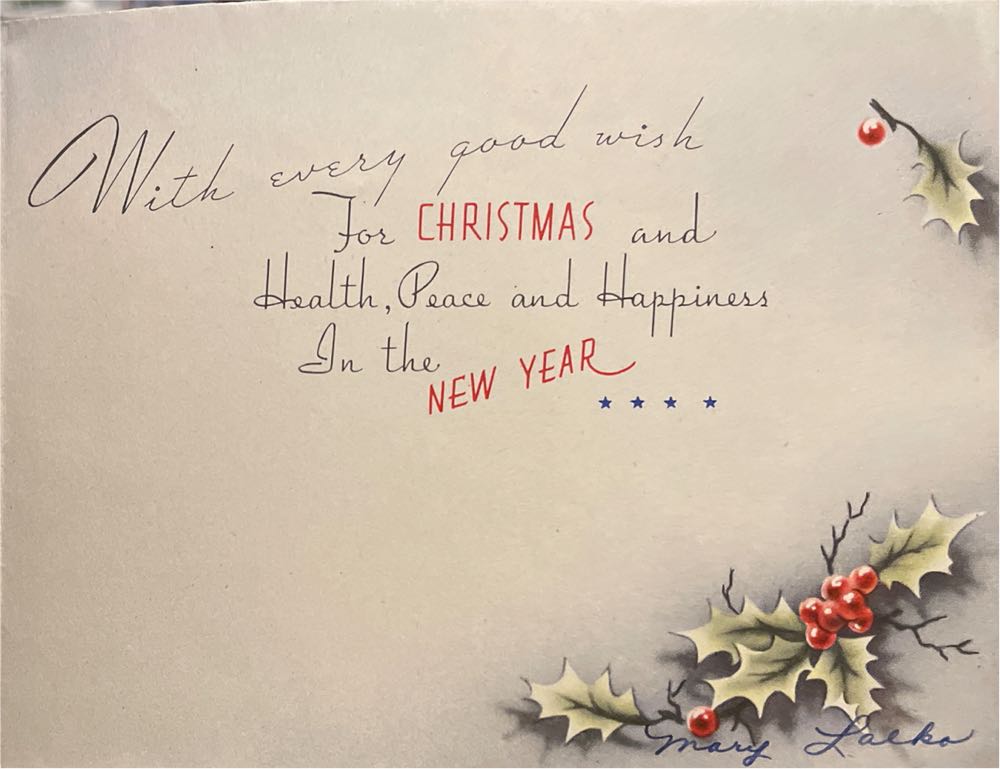 With every good wish
For CHRISTMAS and
Health, Peace and Happiness
In the
NEW YEAR
Mary Lalko